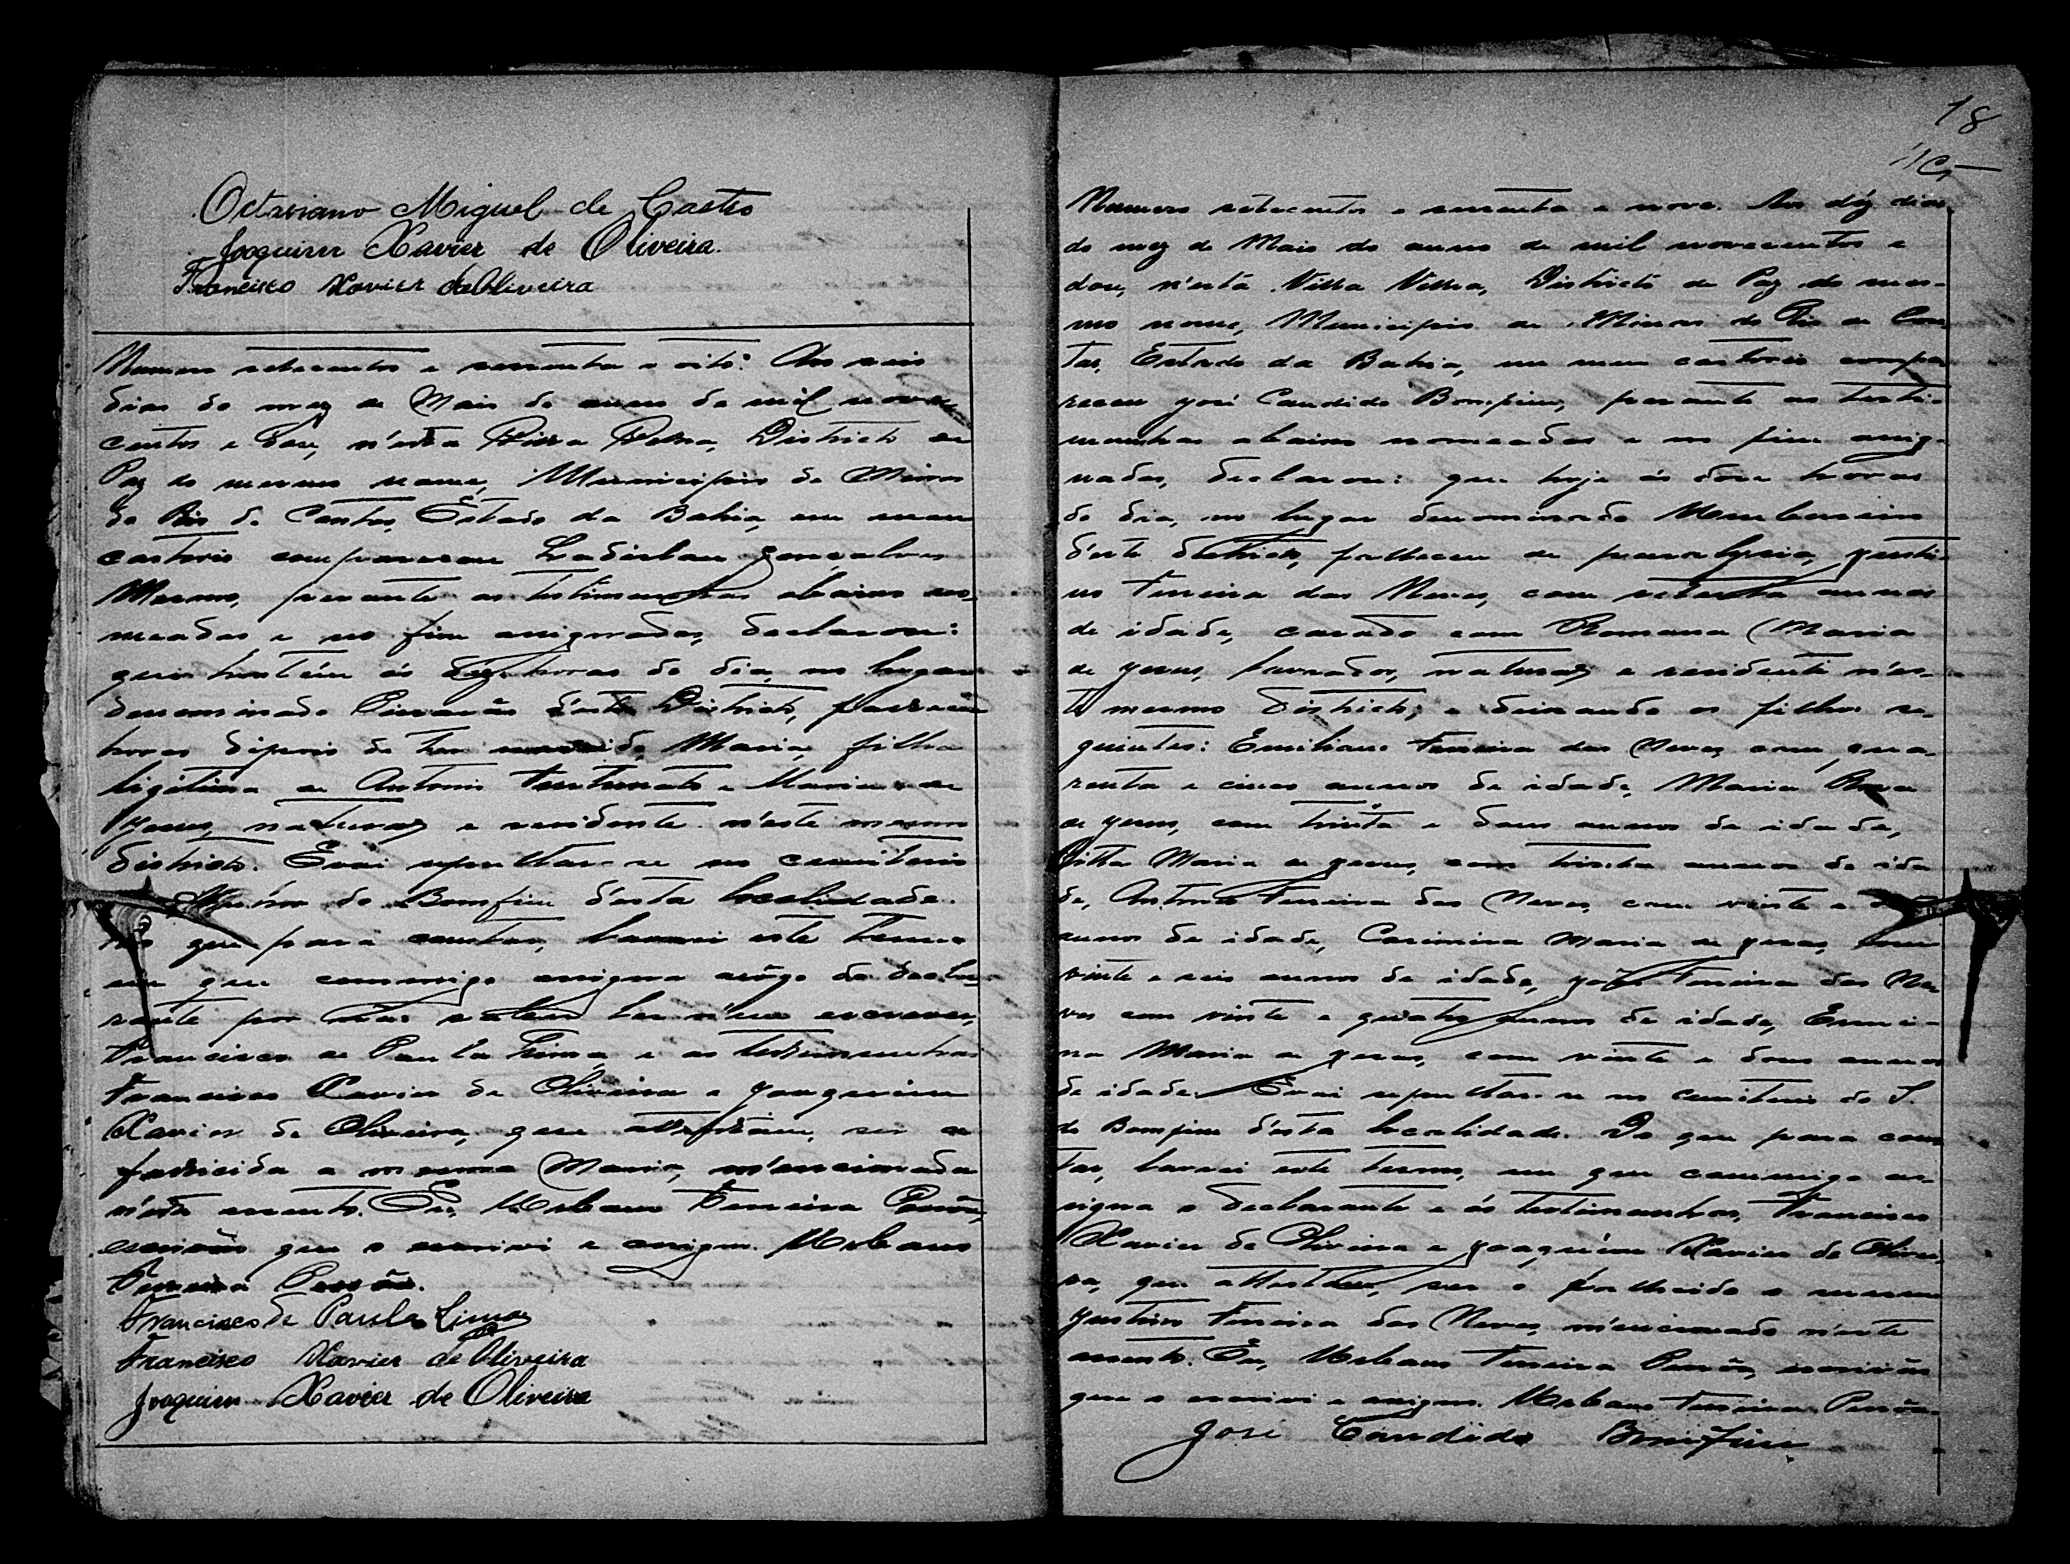 Octaviano Miguel de Castro
Joaquim Xavier de Oliveira.
Francisco Xavier de Oliveira
Numero setecentos e sessenta e oito: Aos seis
dias do mez de Maio do anno de mil nove-
centos e dou, n'esta Villa Velha, Districto de
Paz do mesmo nome, Municipio de Minas
do Rio de Contas, Estado da Bahia, em meu
cartorio compareceu Ladislau Gonçalves
perante as testimunhas abaixo no-
meadas e no fim assignadas, declarou:
que hontém ás déz horas do dia, no lugar
denominado d'este Districto, falleceu
horas dipois de ter nascido, Maria, filha
ligitima de Antonio Fortunato e Maria de
Jesus, natural e residente n'este mesmo
districto. E vai sepultar-se no cemiterio
do Bomfim d'esta localidade.
que para constar, lavrei este termo
em que commigo assigna arôgo do decla-
rante por não saber ler n'em escrever,
Francisco de Paula Lima, e as testimunhas
Francisco Xavier de Oliveira e Joaquim
Xavier de Oliveira, que attestam, ser a
fallicida a mesma Maria, m'encionada
n'este assento. Eu, Urbano Ferreira Pessôa,
escrivão que o escrivi e assigno. Urbano
Ferreira Pessôa.
Francisco de Paula Lima
Francisco Xavier de Oliveira
Joaquim Xavier de Oliveira
18
Numero setecentos e sessenta e nove. Aos déz dias
do mez de Maio do anno de mil novecentos e
dou, n'esta Villa Velha, Districto de Paz do mes-
mo nome, Municipio de Minas do Rio de Con-
tas, Estado da Bahia, em meu cartorio compa-
receu José Candido Bomfim, perante as testi-
munhas abaixo nomeadas e no fim assig-
nadas, declarou: que hoje ás dou horas
do dia, no lugar denominado
d'este districto, falleceu de paralysia, Justi-
no Ferreira das Neves, com setenta annos
de idade, casado com Romana Maria
de Jesus, lavrador, natural e residente n'es-
te mesmo Districto; e deixando os filhos se-
guintes: Emiliano Ferreira das Neves com qua-
renta e cinco annos de idade, Maria Rosa
de Jesus, com trinta e dous annos de idade,
Maria de Jesus, com trinta annos de ida
de, Antonio Ferreira das Neves, com vinte e
annos de idade, Casimira Maria de Jesus, com
vinte e seis annos de idade, José Ferreira das Ne-
ves com vinte e quatro annos de idade,
Maria de Jesus, com vinte e dous annos
de idade. E vai sepultar-se no cemiterio do S.
do Bomfim d'esta localidade. Do que para cons-
tar, lavrei este termo, em que commigo as-
signa o declarante e ás testimunhas, Francisco
Xavier de Oliveira e Joaquim Xavier de Olivei-
ra, que attestam, ser o fallicido o mesmo
Justino Ferreira das Neves, m'encionado n'este
assento. Eu, Urbano Ferreira Pessôa, escrivão
que o escrivi e assigno. Urbano Ferreira Pessôa.
José Candido Bomfim